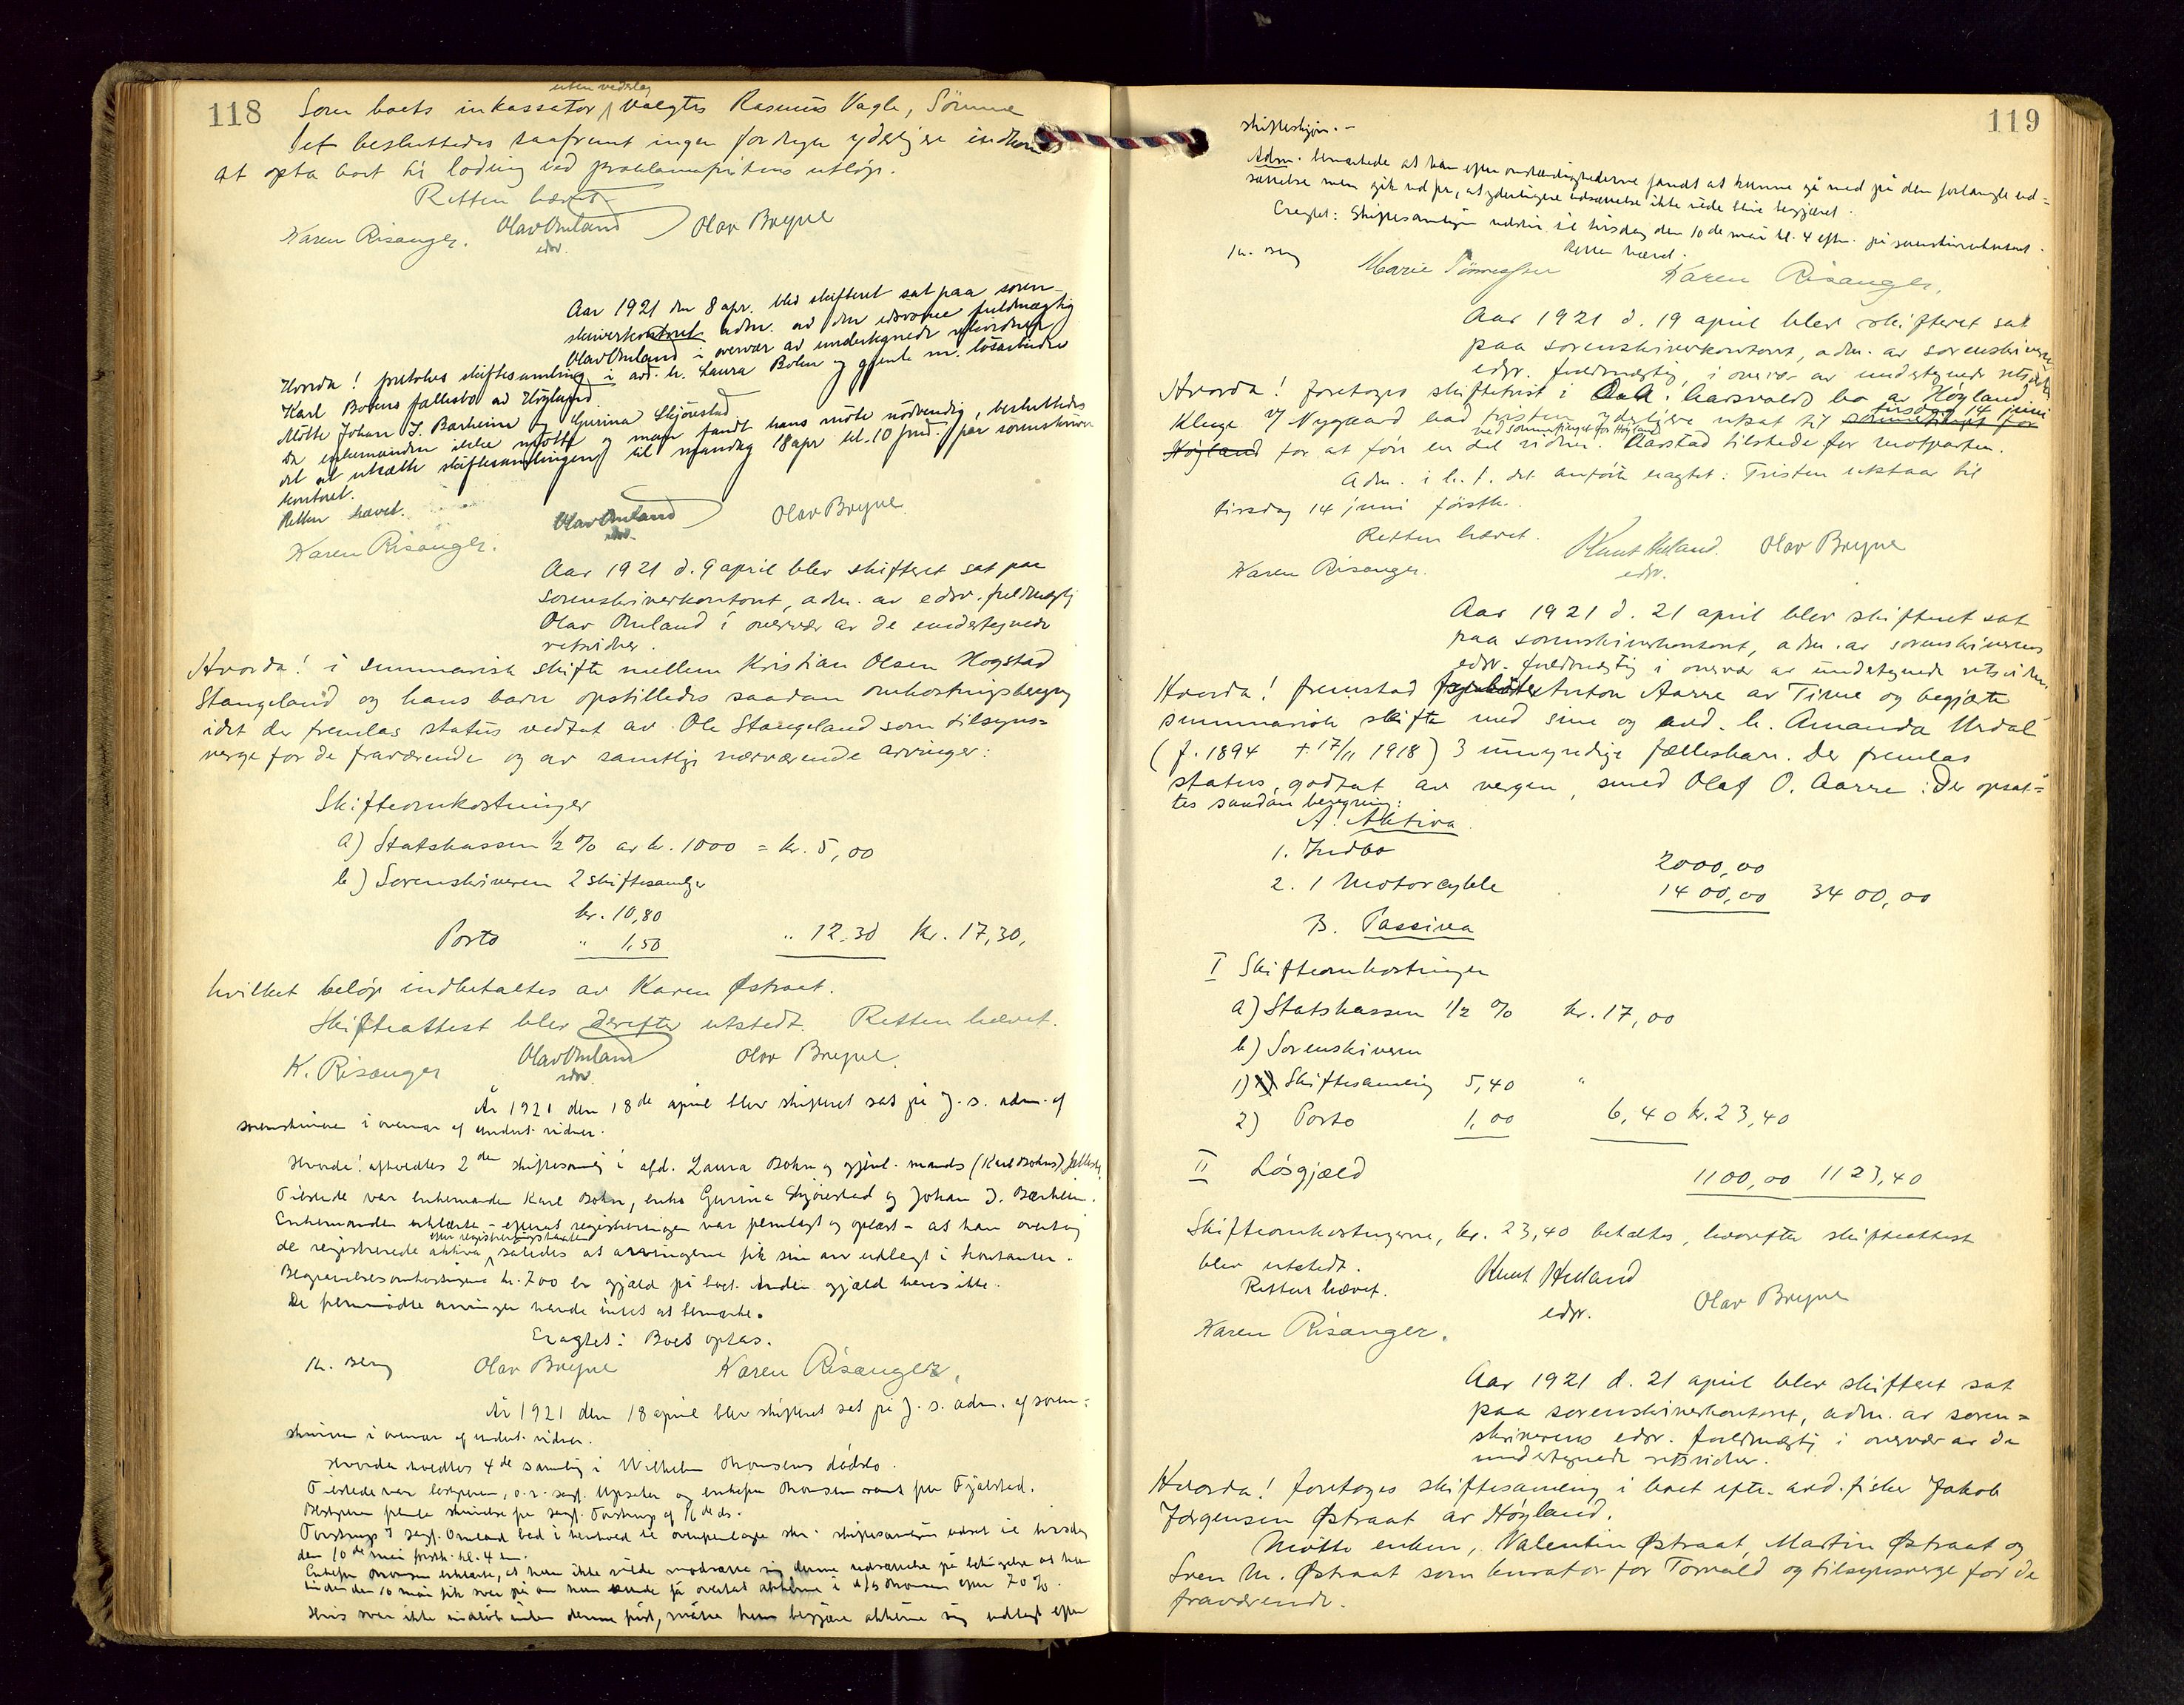 118
uten vederlag
Som boets inkassator valgtes Rasmus Vagle, Sömme
Det besluttedes saafremt ingen fordringer yderligere indkom
at opta boet til lodning ved proklamafristens utløp.
Retten hævet
Karen Risanger. Olav Omland Olav Bryne
edsv.
Aar 1921 den 8 apr. blev skifteret sat paa soren-
skriverkontoret adm. av den edsvorne fuldmægtig
Olav Omland i overvær av undertegnede retsvidner
Hvorda! foretokes skiftesamling i avd. k. Laura Bohn og gjenle. m. løsarbeider
Karl Bohns fællesbo av Høyland
Møtte Johan J. Bærheim og Gurina Skjørestad
Da enkemanden ikke møtte og man fandt hans møte nødvendig, besluttedes
det at utsætte skiftesamlingen til mandag 18 apr kl. 10 form. paa sorenskriver
kontoret.
Retten hævet.
Karen Risanger. Olav Omland Olav Bryne
edsv.
Aar 1921 d. 9 april blev skifteret sat paa
sorenskriverkontoret, adm. av edsv. fuldmægtig
Olav Omland i overvær av de undertegnede
retsvidner.
Hvorda! i summarisk skifte mellem Kristian Olsen Hogstad
Stangeland og hans barn opstilledes saadan omkostningsberegning
idet der fremlas status vedtat av Ole Stangeland som tilsyns=
verge for de fraværende og av samtlige nærværende arvinger:
Skifteomkostninger
a) Statskassen ½ % av kr. 1000 = kr. 5,00
b) Sorenskriveren 2 skiftesamlger
kr. 10,80
Porto " 1,50 " 12,30 kr. 17,30,
hvilket beløp indbetaltes av Karen Østraat.
Skifteattest blev derefter utstedt. Retten hævet.
K. Risanger Olav Omland Olav Bryne
edsv.
År 1921 den 18de april blev skifteret sat på J. s. adm. af
sorenskriveren i overvær af undert. vidner.
Hvorda! afholdtes 2den skiftesamlg i afd. Laura Bohn og gjenl. mands (Karl Bohns) fællesbo,
Tilstede var enkemanden Karl Bohn, enke Gurina Skjørestad og Johan J. Bærheim.
Enkemanden erklærte – efterat registreringen var fremlagt og oplæst – at han overtog
efter registreringstaksten
de registrerede aktiva således at arvingerne fik sin arv udlagt i kontanter.
Begravelsesomkostningerne kr. 700 er gjæld på boet. Anden gjæld haves ikke.
De fremmødte arvinger havde intet at bemærke.
Eragtet: Boet optas.
K. Berg Olav Bryne Karen Risanger,
År 1921 den 18 april blev skifteret sat på J. s. adm. af soren=
skriveren i overvær af undert. vidner.
Hvorda holdtes 4de samling i Wilhelm Monsens dødsbo.
Tilstede var bestyreren, o.r. sagf. Upsaker og enkefru Monsen samt fru Fjælsted.
Bestyreren fremla skrivelse fra sagf. Torstrup af 16de ds.
Torstrup og sagf. Omland bad i henhold til skr. skiftesamlingen udsat til tirsdag
den 10de mai førstk. kl. 4 em.
Enkefru Monsen erklærte, at hun ikke vilde modsætte sig denne udsættelse på betingelse at hun
inden den 10 mai fik svar på om hun kunde få overtad aktierne i a/s Monsen efter 70 %.
Hvis svar ikke indløb inden denne frist, måtte hun begjære aktierne sig udlagt efter
119
skifteskjøn. –
Adm. bemærkede at han efter omstændighederne fandt at kunne gå med på den forlangte ud=
sættelse men gik ud fra, at yderligere udsættelse ikke vilde blive begjæret.
Eragtet: Skiftesamlingen udstår til tirsdag den 10de mai kl. 4 eftm. på sorenskriverkontoret.
Retten hævet.
K. Berg Marie Karen Risanger,
Aar 1921 d. 19 april blev skifteret sat
paa sorenskriverkontoret, adm. av sorenskriverens
edsv. fuldmægtig, i overvær av undertegnede retsvidner
Hvorda! foretoges skiftetvist i O. A. Aarsvolds bo av Høyland
Kluge v/ Nygaard bad tvisten yderligere utsat til sommertinget for tirsdag 14 juni
ved sommertinget for Høyland
Høyland for at føre en del vidner. Aarstad tilstede for motparten.
Adm. i h. t. det anførte eragtet: Tvisten utstaar til
tirsdag 14 juni førstk.
Retten hævet. Knut Huland. Olav Bryne
Karen Risanger. edsv.
Aar 1921 d. 21 april blev skifteret sat
paa sorenskriverkontoret, adm. av sorenskriverens
edsv. fuldmægtig i overvær av undertegnede retsvidner.
Hvorda! fremstod Anton Aarre av Time og begjærte
summarisk skifte med sine og avd. h. Amanda Urdal
(f. 1894 + 17/11 1918) 3 umyndige fællesbarn. Der fremlas
status, godtat av vergen, smed Olaf O. Aarre: Der opsat=
tes saadan beregning:
A. Aktiva.
1. Indbo 2000,00
2. 1 Motorcykle 1400,00 3400,00
B. Passiva
I Skifteomkostninger
a) Statskassen 1/2 % kr. 17,00
b) Sorenskriveren
1) Skiftesamling 5,40 "
2) Porto 1,00 6,40 kr. 23,40
II Løsgjæld 1100,00 1123,40
Skifteomkostningerne, kr. 23,40 betaltes, hvorefter skifteattest
blev utstedt.
Retten hævet. Knut Huland
edsv. Olav Bryne
Karen Risanger.
Aar 1921 d. 21 april blev skifteret sat
paa sorenskriverkontoret, adm. av soren=
skriverens edsv. fuldmægtig i overvær av de
undertegnede retsvidner.
Hvorda! foretoges skiftesamling i boet efter avd. fisker Jakob
Jørgensen Østraat av Høyland.
Møtte enken, Valentin Østraat, Martin Østraat og
Sven M. Østraat som kurator for Torvald og tilsynsverge for de
fraværende.